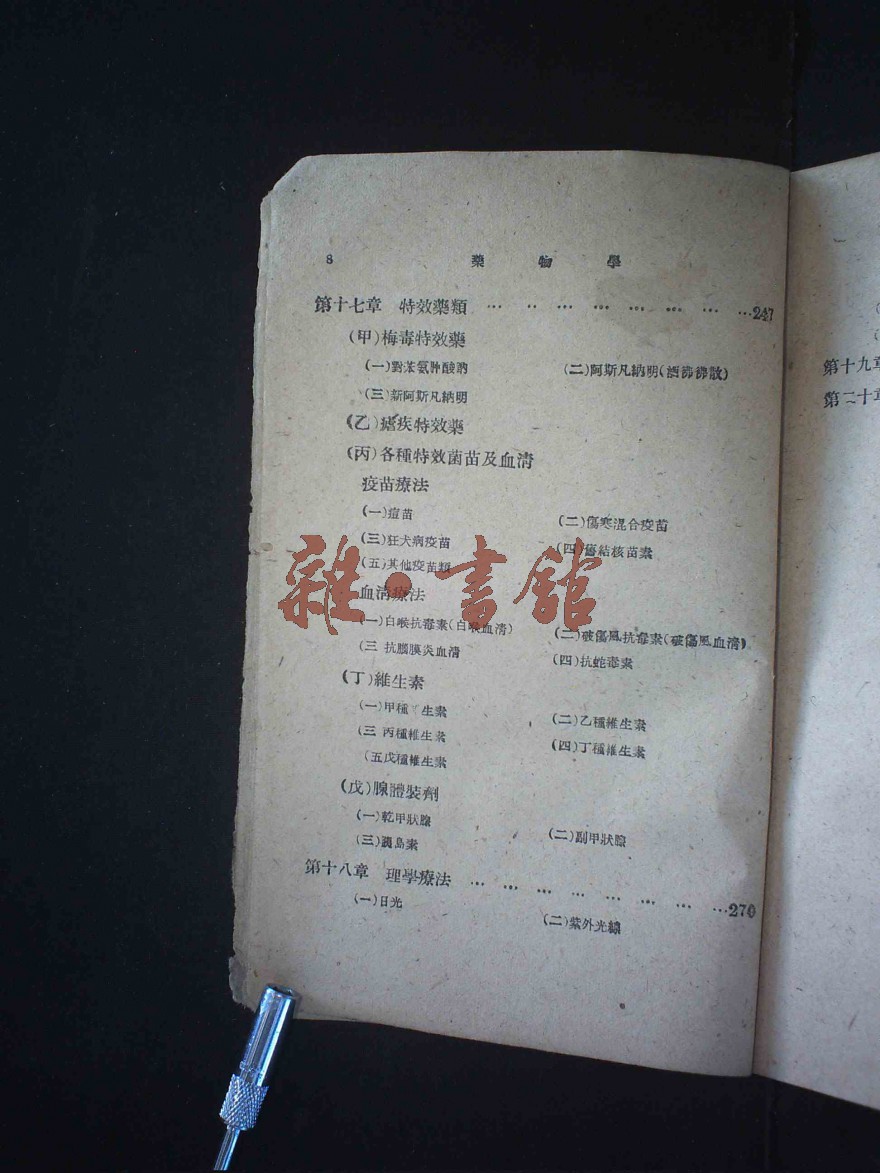 8 藥物學
第十七章 特效藥類 … ‥ … … … … … …247
(甲)梅毒特效藥
(一)對苯氨肿酸鈉 (二)阿斯凡納明(洒弗散)
(三)新阿斯凡納明
(乙)瘧疾特效藥
(丙)各種特效菌苗及血清
疫苗療法
(一)痘苗 (二)傷寒混合疫苗
(三)狂犬病疫苗 (四)舊結核苗素
(五)其他疫苗類
血清療法
(一)白喉抗毒素(白喉血清) (二)破傷風抗毒素(破傷風血清)
(三 抗腦膜炎血清 (四)抗蛇毒素
(丁)維生素
(一)甲種 生素 (二)乙種維生素
(三 丙種維生素 (四)丁種維生素
(五戊種維生素
(戊)腺體裝劑
(一)乾甲狀腺 (二)副甲狀腺
(三)胰島素
第十八章 理學療法 … … … … … … … …270
(一)日光 (二)紫外光線
第十九章
第二十章
雜·書館